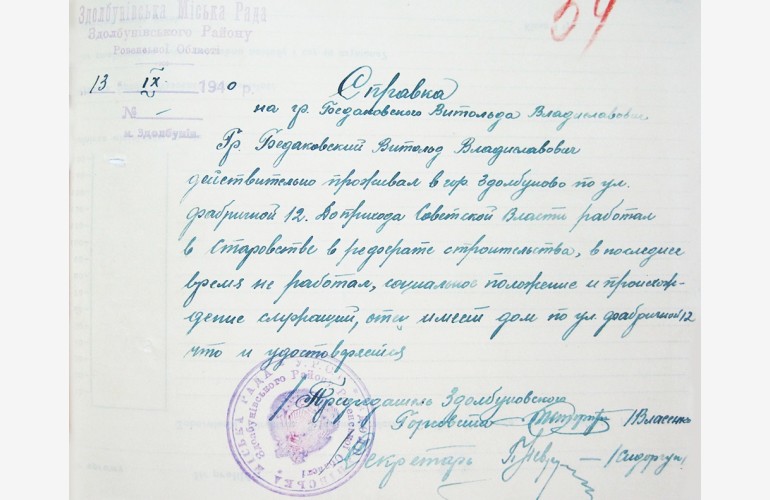 Здолбунівська Міська Рада
Здолбунівського Району
Ровенської Області
54
13 IX 1940 р.
№ —
м. Здолбунів.
Справка
на гр. Бедаковского Витольда Владиславович
Гр. Бедаковский Витольд Владиславович
действительно проживал в гор. Здолбуново по ул.
фабричной 12. До прихода Советской Власти работал
в Старовстве в редоерате строительства, в последнее
время не работал, социальное положение и происхож-
дение служащий, отец имеет дом по ул. фабричной 12
что и удостоверяется
/Председатель Здолбуновского
Горсовета /Власенко
/Секретарь /Сидорчук/